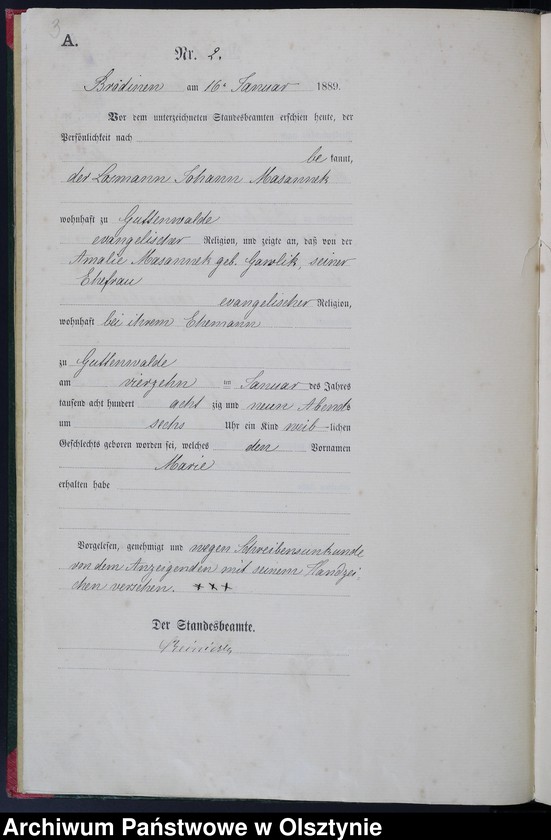 3
A.
Nr. 2.
Brödinen am 16n Januar 1889.
Vor dem unterzeichneten Standesbeamten erschien heute, der
Persönlichkeit nach
be kannt,
der Losmann Johann Masannek
wohnhaft zu Guttenwalde
evangelischer Religion, und zeigte an, daß von der
Amalie Masannek geb. Gawlik, seiner
Ehefrau
evangelischer Religion,
wohnhaft bei ihrem Ehemann
zu Guttenwalde
am vierzehn ten Januar des Jahres
tausend acht hundert acht zig und neun Abends
um sechs Uhr ein Kind weib-lichen
Geschlechts geboren worden sei, welches den Vornamen
Marie
erhalten habe
Vorgelesen, genehmigt und wegen Schreibensunkunde
von dem Anzeigenden mit seinem Handzei
chen versehen. +++
Der Standesbeamte.
Archiwum Państwowe w Olsztynie